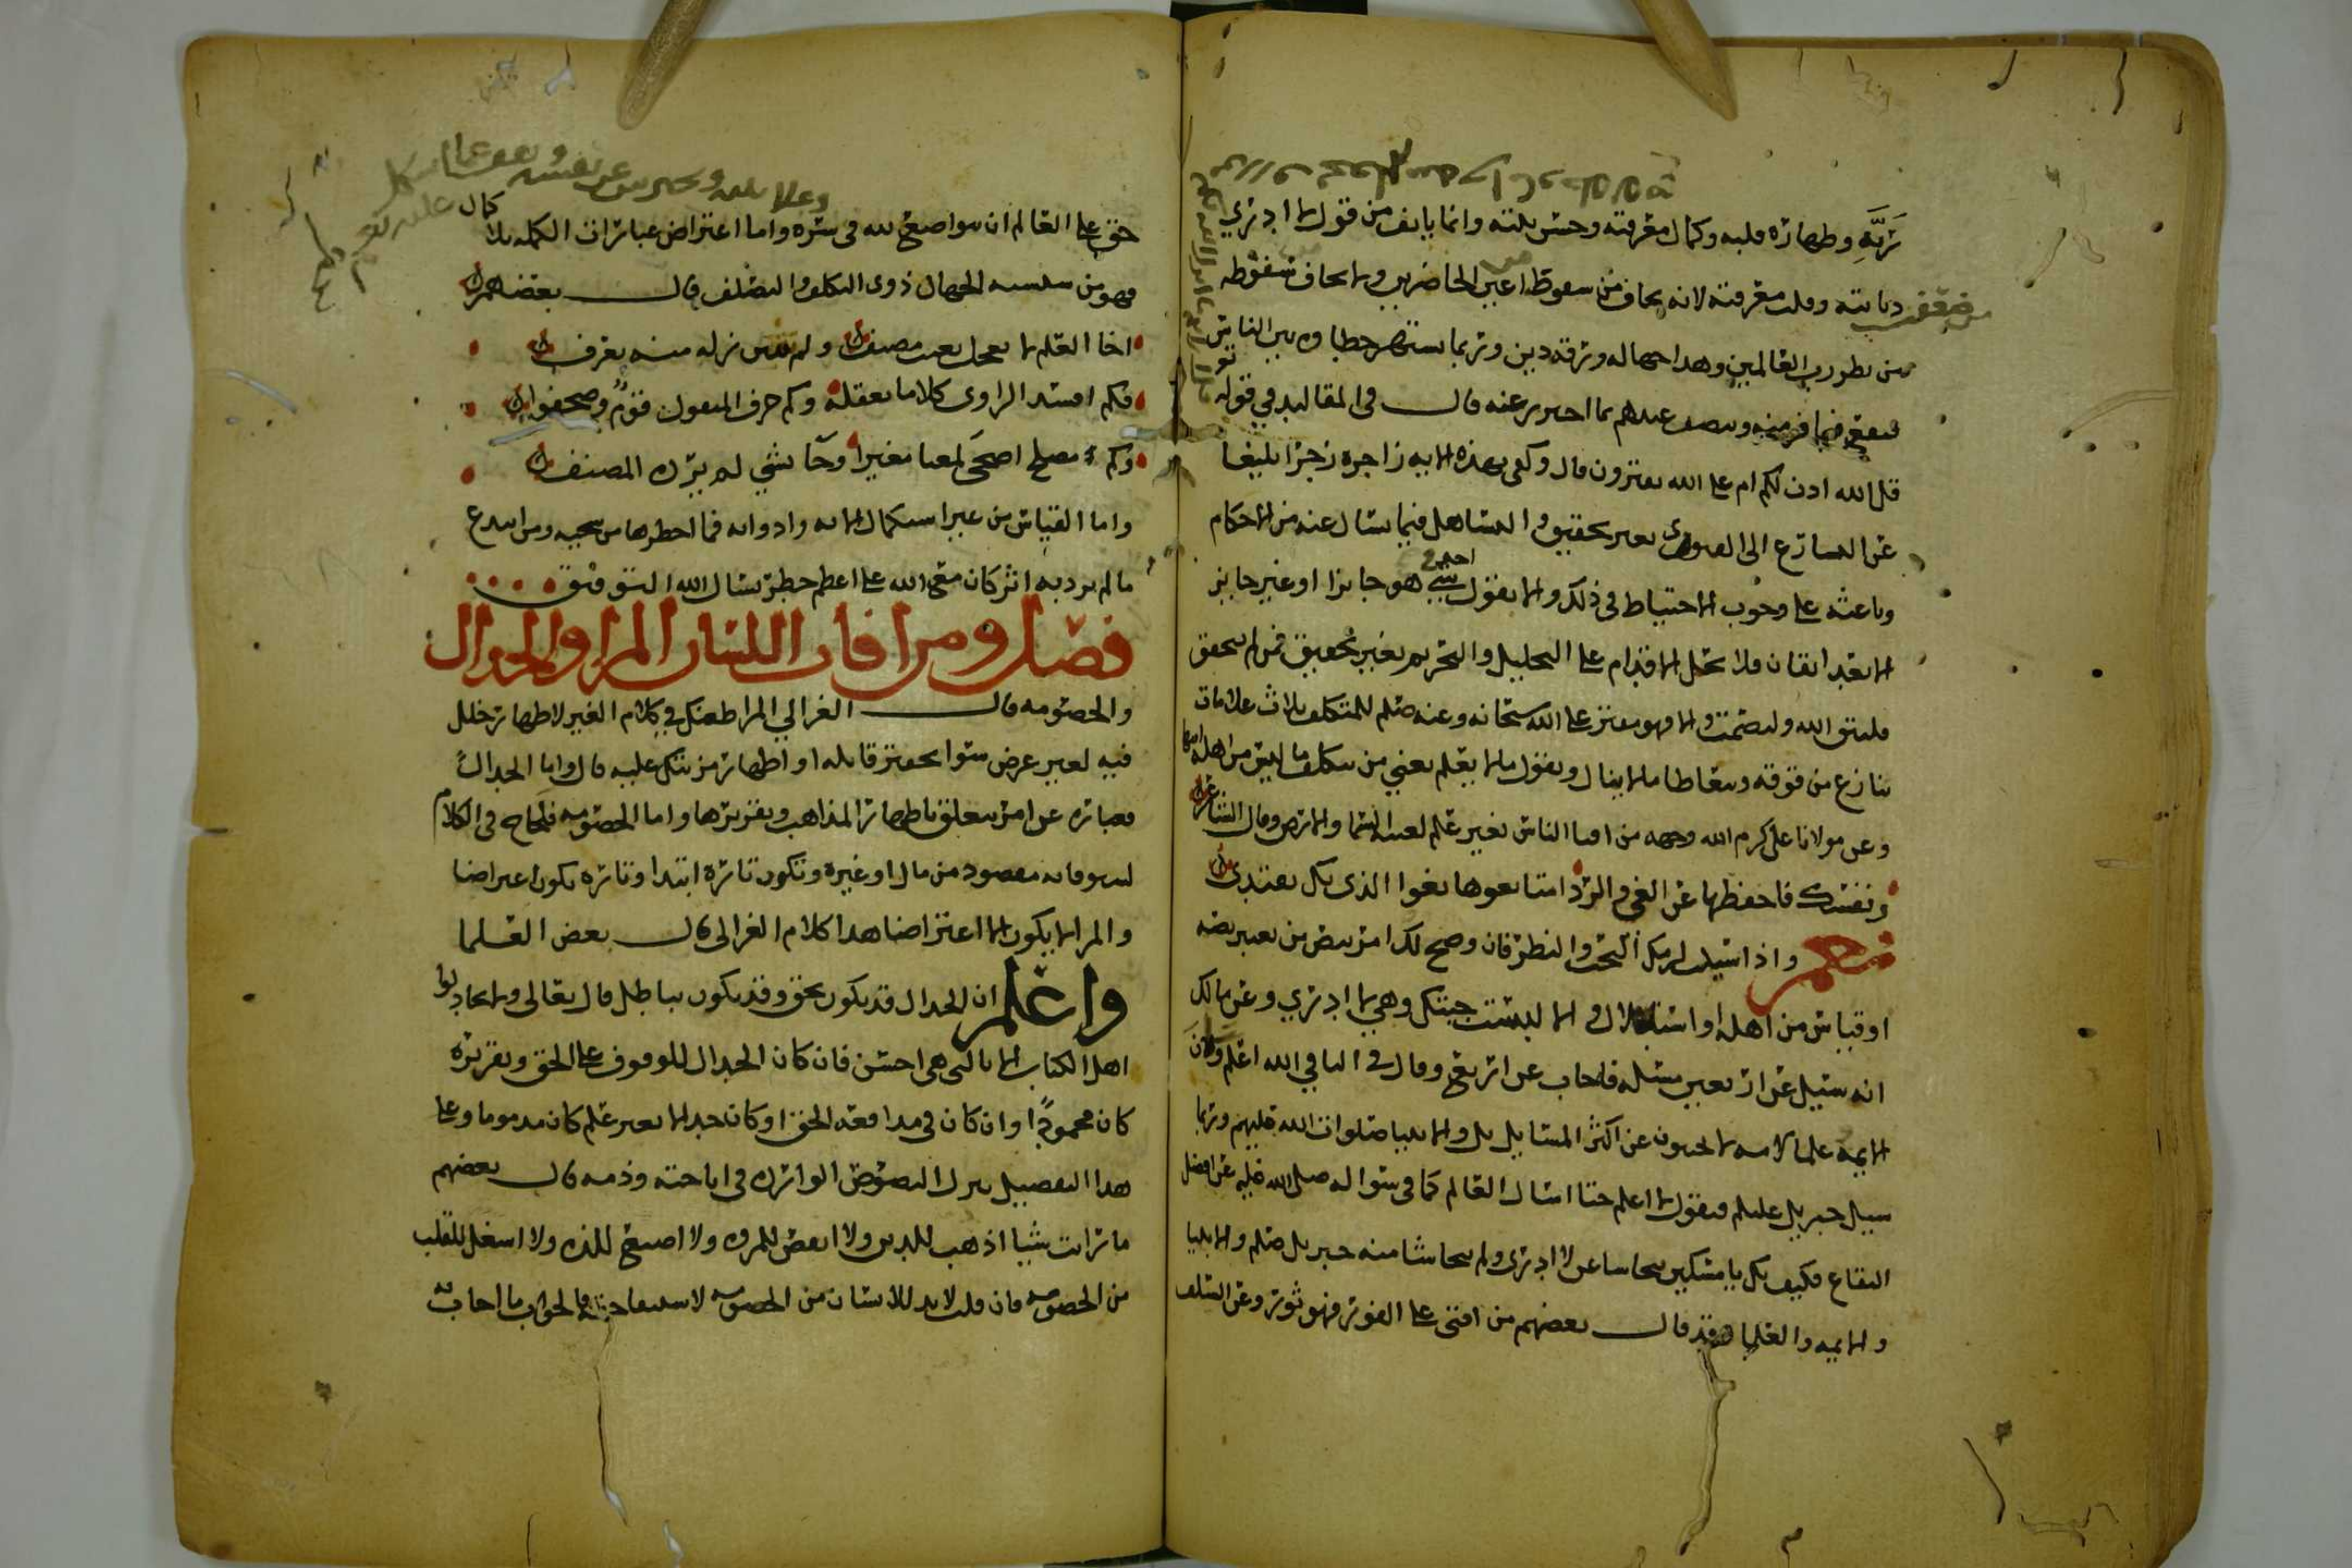 ربه وطهارة قلبه وكمال معرفته وحسن نيته وانما يانف من قول لا ادري
ضعفت ديانته وقلت معرفته لانه يخاف من سقوطه من اعين الحاضرين ولا يخاف سقوطه
من نظر رب العالمين وهذا جهالة ورقة دين وربما يشتهر خطاوه بين الناس
فيقع فيما فر منه ويتصف عندهم بما احترز عنه قال في المقاليد في قوله تع
قل الله اذن لكم ام على الله تفترون قال وكفى بهذه الايه زاجرة زجرا بليغا
عن التسارع الى الفتوى بغير تحقيق والتساهل فيما يسال عنه من الاحكام
وباعثه على وجوب الاحتياط في ذلك والا يقول احد في شي هو جايزا او غير جايز
الا بعد اتقان فلا تحل الاقدام على التحليل والتحريم بغير تحقيق فمن لم يتحقق
فليتق الله وليصمت والا فهو مفتر على الله سبحانه وعنه صلم للمتكلف ثلاث علامات
ينازع من فوقه ويتعاطا ما لا ينال ويقول ما لا يعلم يعني من تكلف ما ليس من اهله
وعن مولانا علي كرم الله وجهه من افتا الناس بغير علم لعنته السما والارض وقال الشاعر
ونفسك فاحفظها عن الغي والردا متا تغوها يغوا الذي بك يقتدي
نعم واذا سيلت لزمك البحث والنظر فان وضح لك امر بنص من يعتبر نصه
او قياس من اهله او استدلال والا ليست جنتك وهي لا ادري وعن مالك
انه سيل عن اربعين مسئلة فاجاب عن اربع وقال في الباقي الله اعلم وكان
الايمة علما الامه لا يجيبون عن اكثر المسايل بل والانبيا صلوات الله عليهم وربما
سيل جبريل عليلم فيقول لا اعلم حتا اسال العالم كما في سواله صلى الله عليه عن افضل
البقاع فكيف بك يا مسكين تحاشا عن لا ادري ولم يتحاشا منه جبريل صلم والانبيا
والايمه والعلما وقد قال بعضهم من افتى على الفور فهو ثور وعن السلف
حق على العالم ان يتواضع لله في سره واما اعتراض عبارات الكمله بلا كمال
فهو من سلسه الجهال ذوي التكلف والتصلف قال بعضهم
اخا العلم لا تعجل بعيب مصنف ولم تتيقن زلة منه تعرف
فكم افسد الراوي كلاما بعقله وكم حرف المنقول قوم وصحفوا
وكم مصلح اضحى لمعنا مغيرا وجا بشي لم يرده المصنف
واما القياس من غير استكمال الاته وادواته فما اخطرها من
ما لم يرد به اثر كان مع الله على اعظم خطر نسال الله التوفيق
فصل ومن افات اللسان المرا والجدال
والخصومه قال الغزالي المرا طعنك في كلام الغير لاظهار خلل
فيه لغير عرض سوا تحقير قايله او اظهار مزيتك عليه قال واما الجدال
فعبارة عن امر يتعلق باظهار المذاهب وتقريرها واما الخصومه فلجاج في الكلام
ليستوفا به مقصود من مال او غيره وتكون تارة ابتدا وتارة يكون اعتراضا
والمرا لا يكون الا اعتراضا هذا كلام الغزالي قال بعض العلما
واعلم ان الجدال قد يكون بحق وقد يكون بباطل قال تعالى ولا تجادلوا
اهل الكتاب الا بالتي هي احسن فان كان الجدال للوقوف على الحق وتقريره
كان محمودا وان كان في مدافعة الحق او كان جدالا بغير علم كان مذموما وعلى
هذا التفصيل تنزل النصوص الواردة في اباحته وذمه قال بعضهم
ما رايت شيا اذهب للدين ولا انقص للمروه ولا اضيع للذه ولا اشغل للقلب
من الخصومه فان قلت لابد للانسان من الخصومه لاستيفا حقه فالجواب ما اجاب به